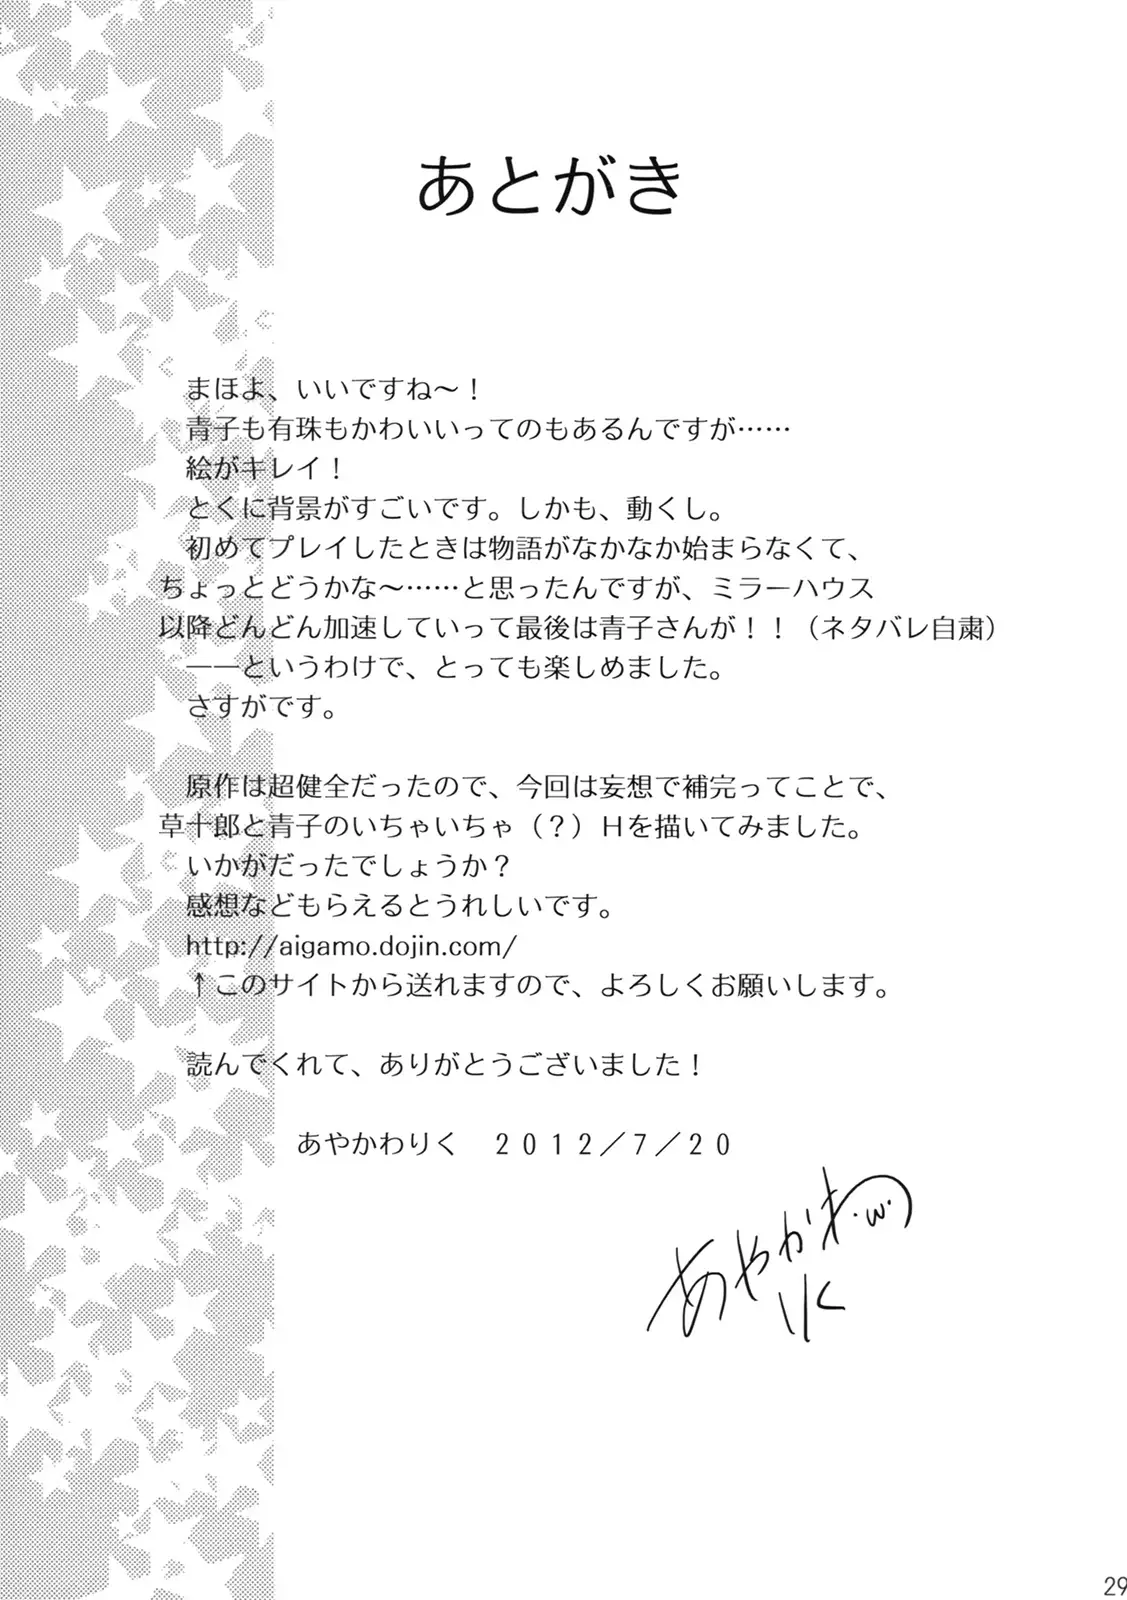 あとがき
まほよ、いいですね～！
青子も有珠もかわいいってのもあるんですが……
絵がキレイ！
とくに背景がすごいです。しかも、動くし。
初めてプレイしたときは物語がなかなか始まらなくて、
ちょっとどうかな～……と思ったんですが、ミラーハウス
以降どんどん加速していって最後は青子さんが！！（ネタバレ自粛）
――というわけで、とっても楽しめました。
さすがです。
原作は超健全だったので、今回は妄想で補完ってことで、
草十郎と青子のいちゃいちゃ（？）Ｈを描いてみました。
いかがだったでしょうか？
感想などもらえるとうれしいです。
http://aigamo.dojin.com/
↑このサイトから送れますので、よろしくお願いします。
読んでくれて、ありがとうございました！
あやかわりく　２０１２／７／２０
あやかわ・w・
りく
29